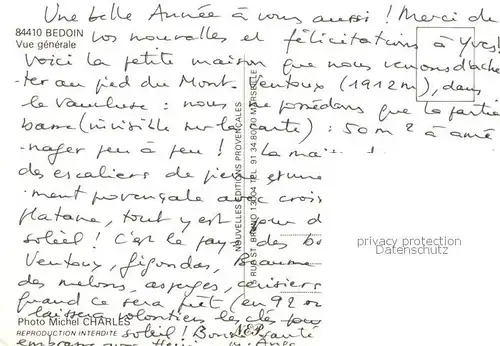 Une belle Année à vous aussi ! Merci de
84410 BEDOIN
vos nouvelles et félicitations à Yves!
Vue générale
Voici la petite maison que nous venons d'ache
-ter au pied du Mont Ventoux (1912m), dans
le Vaucluse : nous ne possédons que la partie
basse (invisible sur la carte) : 50 m2 à amé
-nager peu à peu ! La mai
des escaliers de pierre et une
-ment provençale avec crois
platane, tout y est pour d
soleil ! C'est le pays des bo
Ventoux, Gigondas, Beaume
des melons, asperges, cerisiers
quand ce sera prêt (en 92 ou
laissera volontiers les clés pour
Photo Michel CHARLES
soleil ! Bonne santé
REPRODUCTION INTERDITE
embrasse
NOUVELLES EDITIONS PROVENÇALES
RUE ST. BRUNO 13004 TEL. 91 34 80 70 MARSEILLE
NEP
privacy protection
Datenschutz